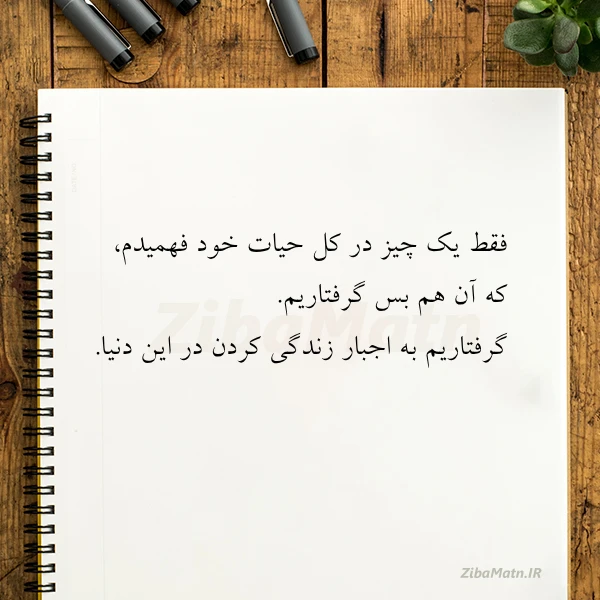 فقط یک چیز در کل حیات خود فهمیدم،
که آن هم بس گرفتاریم.
گرفتاریم به اجبار زندگی کردن در این دنیا.
ZibaMatn
ZibaMatn.IR